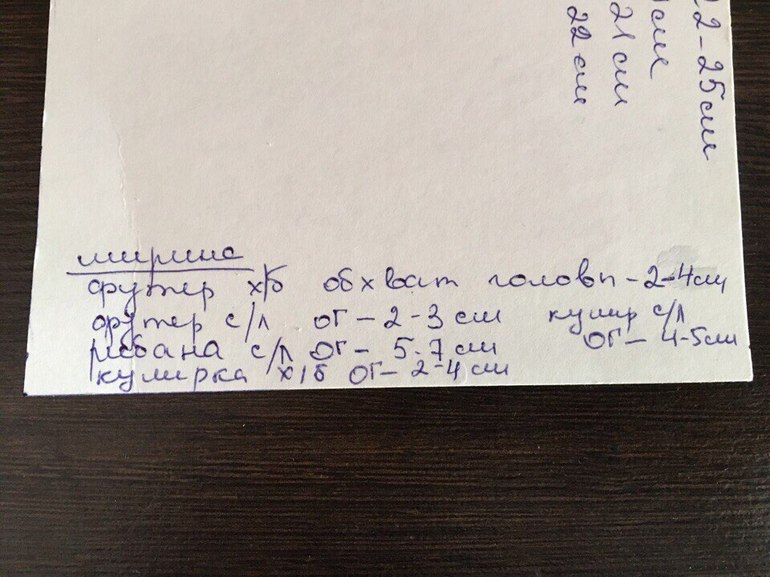 22-25см
21см
22см
ширина
футер х/б обхват головы - 2-4см
футер с/л ог - 2-3 см кулир с/л
рибана с/л ОГ - 5-7 см ОГ - 4-5см
кулирка х/б ОГ - 2-4 см